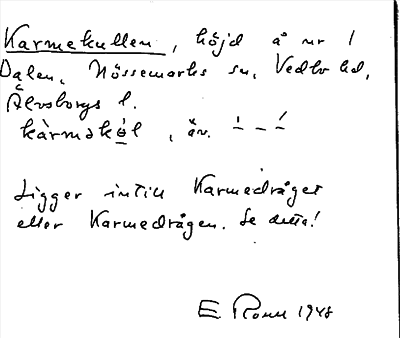 Karmekullen, höjd å nr 1
Dalen, Nössemarks sn, Vedbo hd,
Älvsborgs l.
kàrmakəl, äv. – – –́
Ligger intill Karmedråget
eller Karmedrågen. Se detta!
E Ronn 1948